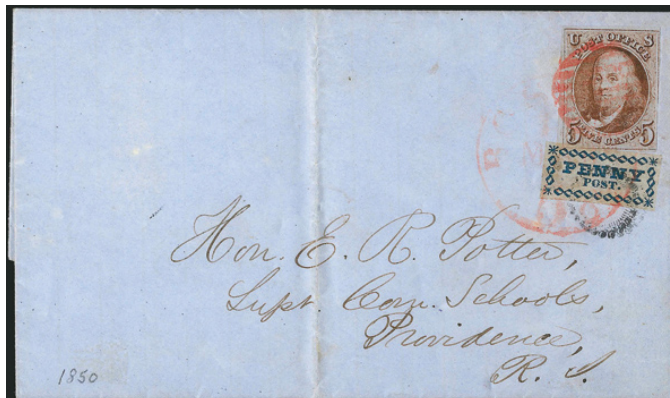 U S
POST OFFICE
5 FIVE CENTS 5
PENNY
POST.
Hon. E. R. Potter,
Supt. Com. Schools,
Providence,
R. I.
1850